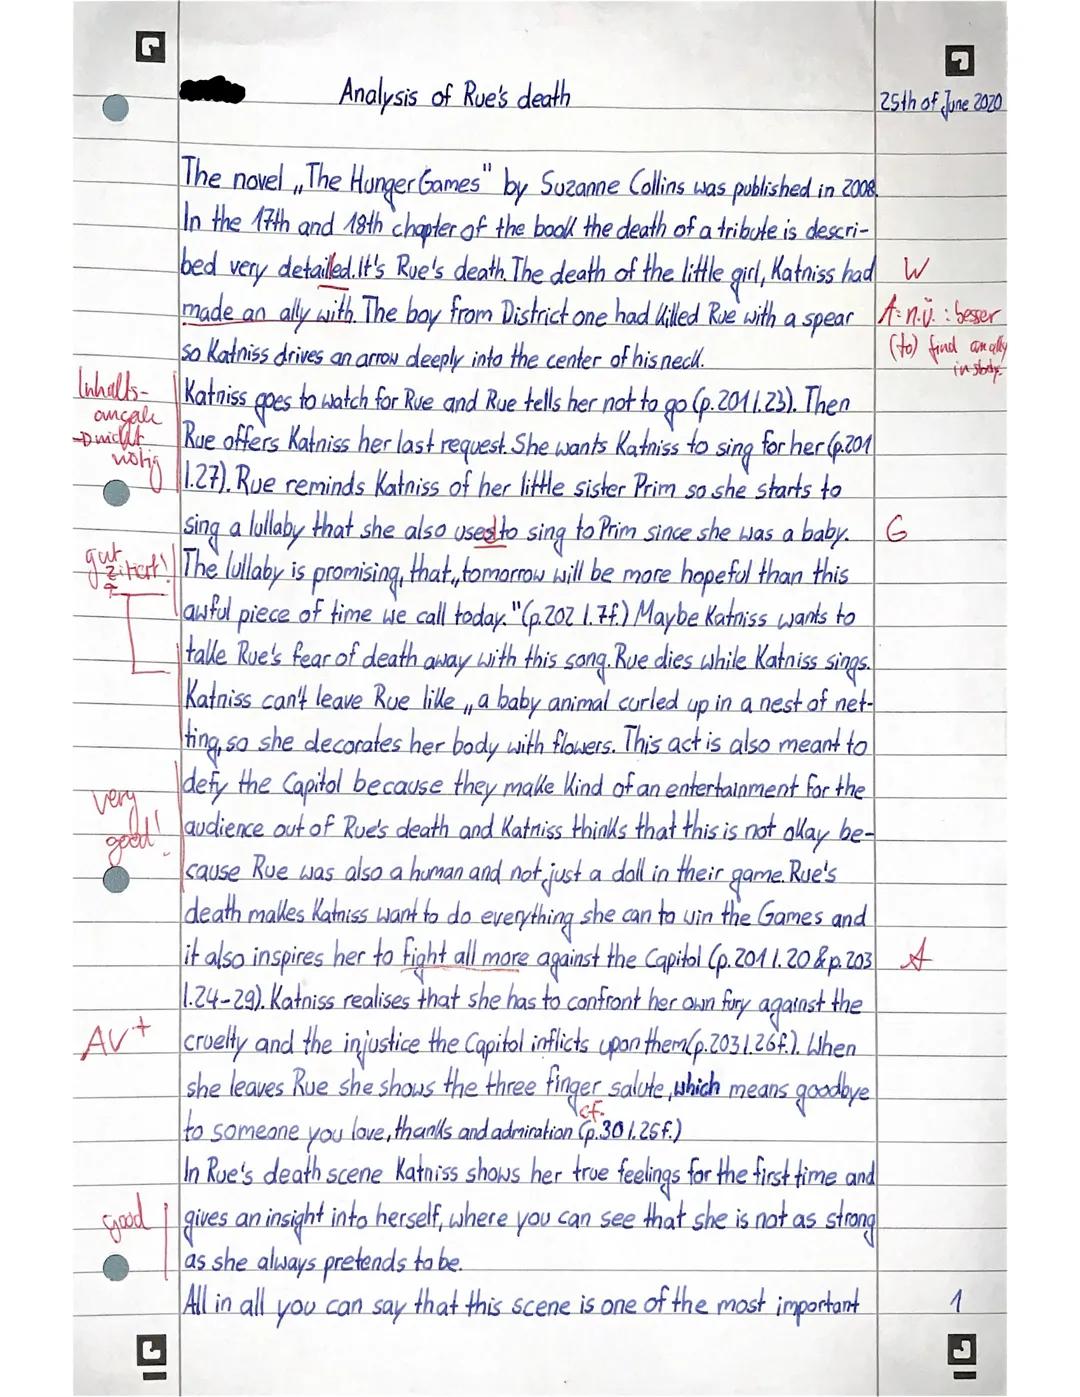 Analysis of Rue's death
25th of June 2020
The novel „The Hunger Games" by Suzanne Collins was published in 2008.
In the 17th and 18th chapter of the book the death of a tribute is descri-
bed very detailed. It's Rue's death. The death of the little girl, Katniss had
W
made an ally with. The boy from District one had killed Rue with a spear
A: n.ü.: besser
(to) find an ally
in sbdy.
so Katniss drives an arrow deeply into the center of his neck.
Inhalts-
angabe
→ nicht
nötig
Katniss goes to watch for Rue and Rue tells her not to go (p.201 l.23). Then
Rue offers Katniss her last request. She wants Katniss to sing for her (p.201
l.27). Rue reminds Katniss of her little sister Prim so she starts to
sing a lullaby that she also used to sing to Prim since she was a baby.
G
gut
zitiert!
The lullaby is promising, that „tomorrow will be more hopeful than this
awful piece of time we call today."(p.202 l.7f.) Maybe Katniss wants to
take Rue's fear of death away with this song. Rue dies while Katniss sings.
Katniss can't leave Rue like „a baby animal curled up in a nest of net-
ting, so she decorates her body with flowers. This act is also meant to
defy the Capitol because they make kind of an entertainment for the
very
good!
audience out of Rue's death and Katniss thinks that this is not okay be-
cause Rue was also a human and not just a doll in their game. Rue's
death makes Katniss want to do everything she can to win the Games and
it also inspires her to fight all more against the Capitol (p.201 l.20 & p.203
A
l.24-29). Katniss realises that she has to confront her own fury against the
AV+
cruelty and the injustice the Capitol inflicts upon them(p.203 l.26f.). When
she leaves Rue she shows the three finger salute, which means goodbye
cf.
to someone you love, thanks and admiration (p.30 l.25f.)
In Rue's death scene Katniss shows her true feelings for the first time and
good
gives an insight into herself, where you can see that she is not as strong
as she always pretends to be.
All in all you can say that this scene is one of the most important
1